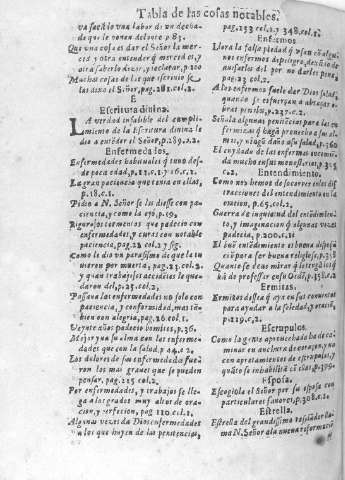 Tabla de las cosas notables.
ua sacãdo una labor di un decha-
do que le tienen delante p 83.
Que una cosa es dar el Señor la mer-
ced y otra entender q̃ merced es, y
otra saberlo dezir, y declarar, p. 120
Muchas cosas de las que escriuio se
las dixo el Señor, pag. 281. col. 2.
E
Escritura diuina.
LA verdad infalible del cumpli-
miento de la Escritura diuina le
dio a entẽder el Señor, p. 289. . 2.
Enfermedades.
Enfermedades habituales q̃ tuuo des-
de poca edad, p. 12. c. 1. y 16. c. 2.
La gran paciencia que tenia en ellas,
p. 18. c. 1.
Pidio a N. Señor se las diesse con pa-
ciencia, y como la oyò, p. 19.
Rigurosos tormentos que padecio con
enfermedades, y curas con notable
paciencia, pag 22 col. 2 y sig.
Como le dio un parasismo de que la tu
uieron por muerta, pag. 23. col. 2.
y que trabajos y accidẽtes le que
daron del, p. 25. col. 2.
Passaua las enfermedades no solo con
paciencia, y conformidad, mas tã-
bien con alegria, pag. 26 col. 1.
Veynte años padecio bomitos, p. 36.
Mejor yua su alma con las enferme-
dades que con la salud, p 44. c 2.
Los dolores de su enfermedad fue-
ron los mas graues que se pueden
pensar, pag. 225 col. 2.
Por enfermedades, y trabajos se lle-
ga a los grados muy altos de ora-
cion, y perfeccion, pag 120. col. 1.
Algunas vezes da Dios enfermedades
a los que huyen de las penitencias,
pag. 253 col. 2. y 348. col. 2.
Enfermos
Llora la falsa piedad q̃ vsan cõ algu-
nos enfermos
auisarles del por no darles pena,
pag. 23 col. 2.
A los enfermos suele dar Dios salud,
quando se esfuerçan a
obras, p. 237. c. 2.
Señala algunas penitencias para las en
fermizas q̃ hagã prouecho a su al-
ma, y no hagã daño a su salud, p. 360
El cuydado de las enfermas encomien-
da mucho en sus monesterios, p. 375 c. 2.
Entendimiento.
Como nos hemos de socorrer en las dis
tracciones del entendimiento en la
oracion, p. 65. col. 2.
Guerra de inquietud del entẽdimiẽ-
to, y imaginacion q̃ algunas vezes
padecia, p 200. c. 1.
El buẽ entẽdimiento es buena dispo-
ciõ para ser buena religiosa, p. 358
Quanto se deue mirar q̃ le tẽgã las
q̃ hã de professar en su Ordẽ, p. 358 c. 2
Ermitas.
Ermitas dessea q̃ aya en sus conuentos
para ayudar a la soledad, y oracion,
p. 219. c. 2.
Escrupulos.
Como la gente aprouechada ha de ca-
minar en confiança de su amor, y no
con apretamientos de escrupulos, y
quãto se inhabilita cõ ellos, p. 379.
Esposa.
Escogiola el Señor por su esposa con
particulares fauores, p. 308. c. 2.
Estrella.
Estrella del grandissimo resplandor lla-
ma N. Señor a la nueua reformaciõ